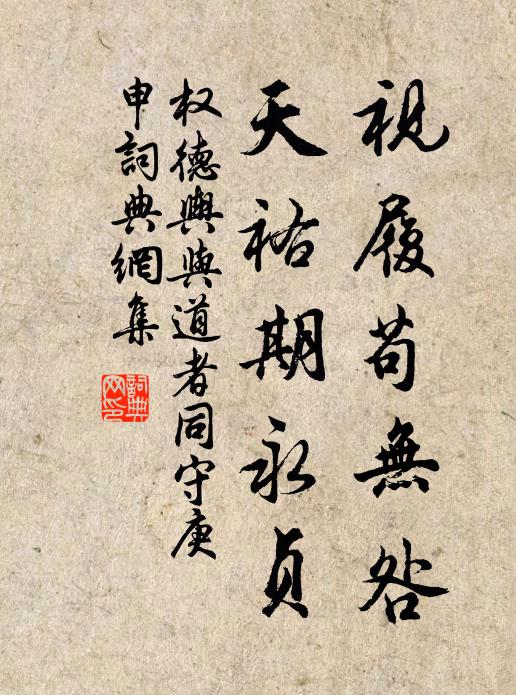 視履苟無咎
天祐期永貞
权德輿與道者同守庚
申詞典網集
詞典网印